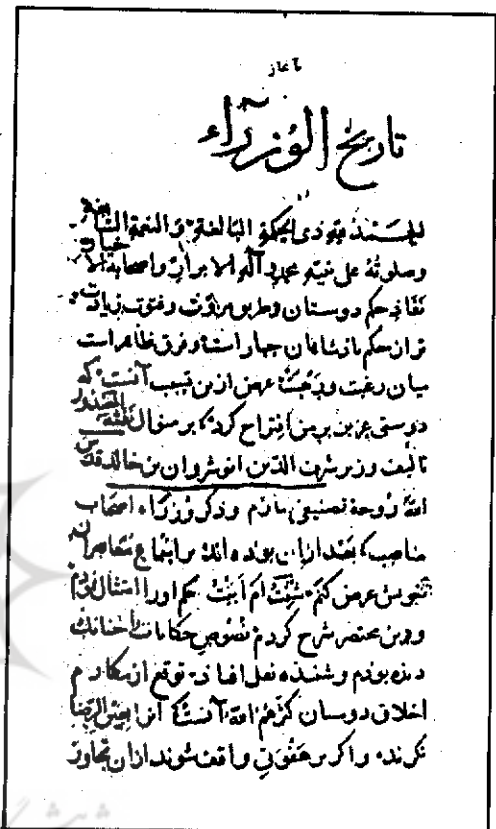 آغاز
تاریخ الوزراء
الحمد لله ذی الحکمة البالغة و النعمة السابغة
و صلوته علی نبیه محمد و آله الابرار و اصحابه الاخیار
نفاذ حکم دوستان و طریق مروت و فتوت زیادت
تر از حکم پادشاهان جبار است و فرق ظاهر است
میان رغبت و رهبت غرض ازین تشبیب آنست که
دوستی عزیز بر من اقتراح کرد کی بر منوال نفثة المصدور
تألیف وزیر شرف الدین انوشروان بن خالد قدس
الله روحه تصنیفی سازم و ذکر وزراء و اصحاب
مناصب کی بعد ازان بوده اند بر اسماع معاصران
عرض کنم شئت ام ابیت حکم او را امتثال نمودم
و درین مختصر شرح کردم نصوص حکایات را چنانک
دیده بودم و شنیده نقل افتاد توقع از مکارم
اخلاق دوستان کثرهم الله آنست کی آنرا بعین الرضا
نگرند و اگر بر عفوتی واقف شوند ازان تجاوز